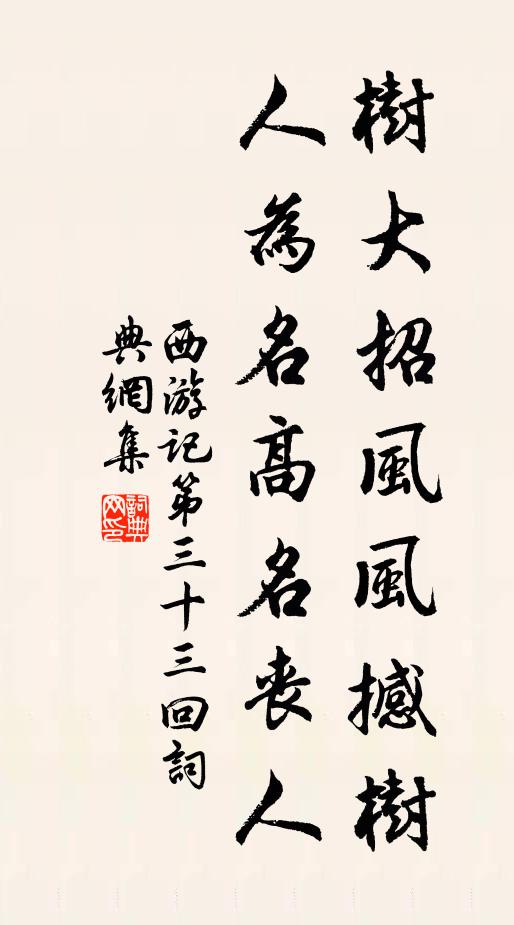 樹大招風風撼樹
人為名高名喪人
西游記第三十三回詞
典網集
詞典
网印